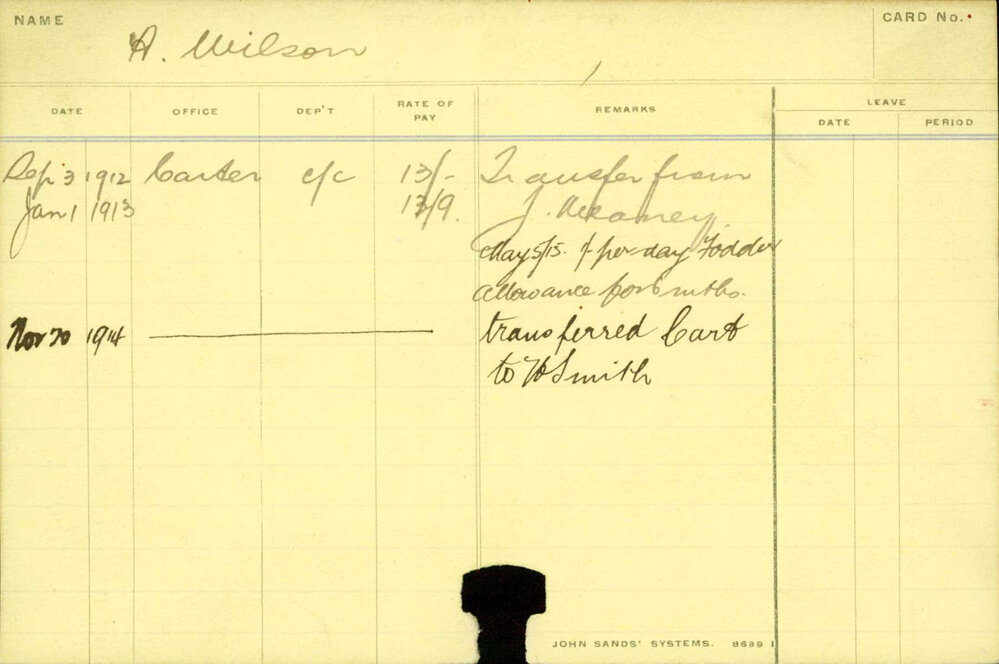 NAME
A. Wilson
CARD No.
DATE OFFICE DEP'T RATE OF PAY REMARKS LEAVE
DATE PERIOD
Sep 3 1912 Carter c/c 13/- Transfer from
Jan 1 1913 13/9. J.
May 5/15. 1/- per day Fodder
allowance for 6 mths.
Nov 20 1914 transferred Cart
to H Smith
JOHN SANDS' SYSTEMS. 8689